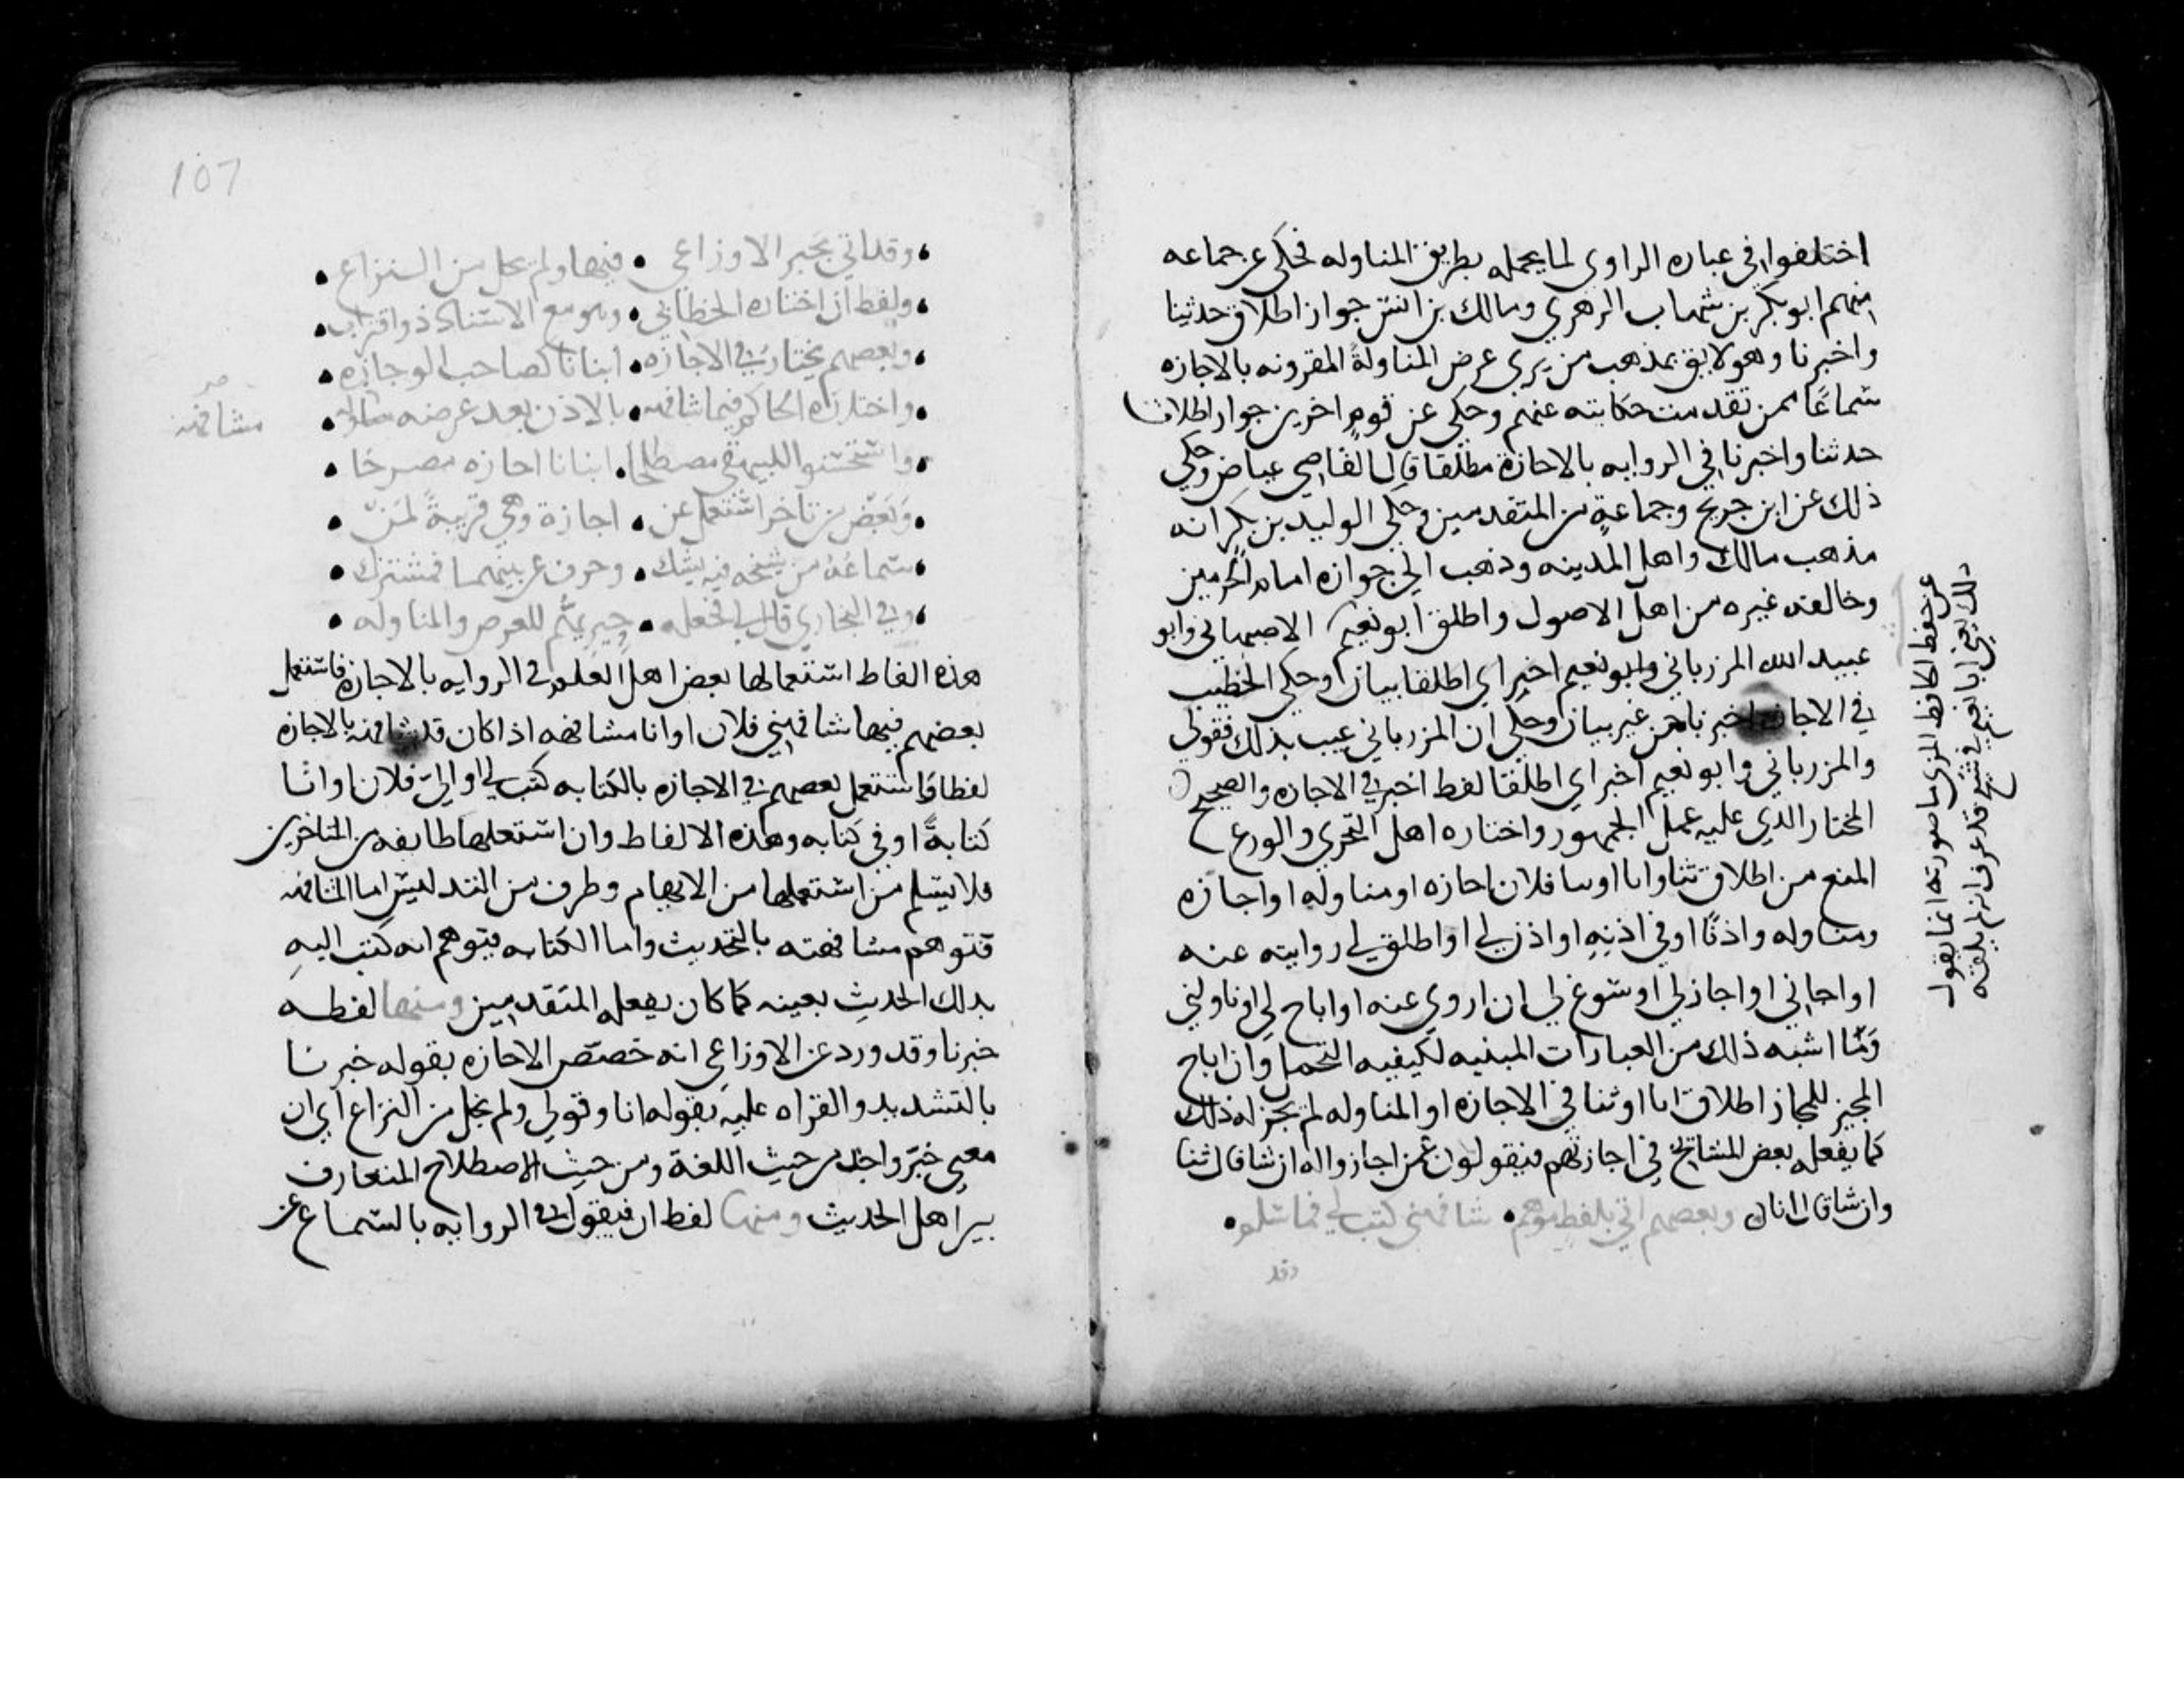 اختلفوا في عباره الراوي لما يحمله بطريق المناوله فحكي عن جماعه
منهم ابو بكر بن شهاب الزهري ومالك بن انس جواز اطلاق حدثنا
واخبرنا وهو لايق بمذهب من يري عرض المناولة المقرونه بالاجازه
سماعًا ممن تقدمت حكايته عنهم وحكي عن قوم اخرين جواز اطلاق
حدثنا واخبرنا في الروايه بالاجازة مطلقا قال القاضي عياض وحكي
ذلك عن ابن جريج وجماعةٍ من المتقدمين وحكي الوليد بن بكر انه
مذهب مالك واهل المدينه وذهب الي جوازه امام الحرمين
وخالفه غيره من اهل الاصول واطلق ابو نعيم الاصبهاني وابو
عبيد الله المرزباني وابو نعيم اخبر اي اطلقا بيان اوحكي الخطيب
في الاجازه اخبرنا من غير بيان وحكي ان المرزباني عيب بذلك فقولي
والمرزباني وابو نعيم اخبر اي اطلقا لفظ اخبر في الاجازه والصحيح
المختار الذي عليه عمل الجمهور واختاره اهل التحري والورع
المنع من اطلاق ثنا وانا اوسا فلان اجازه او مناوله او اجازة
ومناوله واذنًا او في اذنِهِ او اذن لي او اطلق لي روايته عنه
او اجاني او اجاز لي او سوغ لي ان اروي عنه او اباح لي او ناولني
وما اشبه ذلك من العبارات المبنيه لكيفيه التحمل وان اباح
المجيز للمجاز اطلاق انا او ثنا في الاجازه او المناوله لم يجز له ذلك
كما يفعله بعض المشايخ في اجازتهم فيقولون عمن اجازوا له ان شا قال ثنا
وان شا قال انا وبعضهم اتي بلفظ موهم • شافهني كتب لي فما سلم •
وقد
عن حفظ الحافظ المزي ما صورته انما يقول
ذلك يعني ابا نعيم في شيخ قد عرف انه لم يلقه
107
• وقد اتي بخبر الاوزاعي • فيها ولم يخل من النزاع •
• ولفظ ان اختاره الخطابي • وهو مع الاسناد ذو اقتراب •
• وبعضهم يختار في الاجازه • انبانا كصاحب الوجازه •
• واختاره الحاكم فيما شافهه • بالاذن بعد عرضه •
مشافهه
• واستحسنوا للبيهقي مصطلحا • انبانا اجازه مصرحا •
• وَبَعْض من تاخر استعمل عن • اجازة وهي قريبةً لمَن •
• سماعُهُ من شيخه فيه يشك • وحرف عن بينهما فمشترك •
• وفي البخاري قال لي فجعله • حِيرِيُّهُم للعرض والمناوله •
هذه الفاظ استعمالها بعض اهل العلم في الروايه بالاجازة فاستعمل
بعضهم فيها شافهني فلان او انا مشافهه اذا كان قد شافهه بالاجازه
لفظا فاستعمل بعضهم في الاجازه بالكتابه كتب لي او اليّ فلان او انا
كتابةً او في كتابه وهذه الالفاظ وان استعملها طايفه من المتاخرين
فلا يسلم من استعملها من الابهام وطرف من التدليس اما المشافهه
فتوهم مشافهته بالتحديث واما الكتابه فيتوهم انه كتب اليهِ
بذلك الحديث بعينه كما كان يفعله المتقدمين ومنها لفظه
خبرنا وقد ورد عن الاوزاعي انه خصص الاجازه بقوله خبرنا
بالتشديد والقراه عليه بقوله انا وقولي ولم يخل من النزاع اي ان
معني خبّر واحد من حيث اللغة ومن حيث الاصطلاح المتعارف
بين اهل الحديث ومنها لفظ ان فيقول في الروايه بالسماع عن